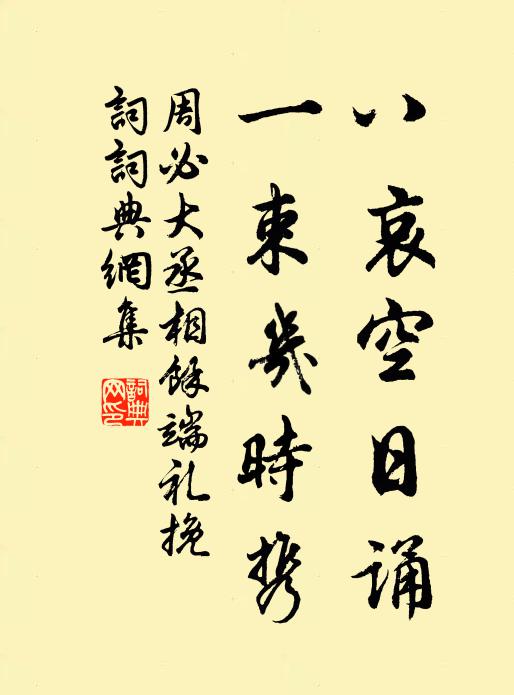 八哀空日誦
一束幾時携
周必大丞相餘端礼挽
詞詞典網集
詞典网印